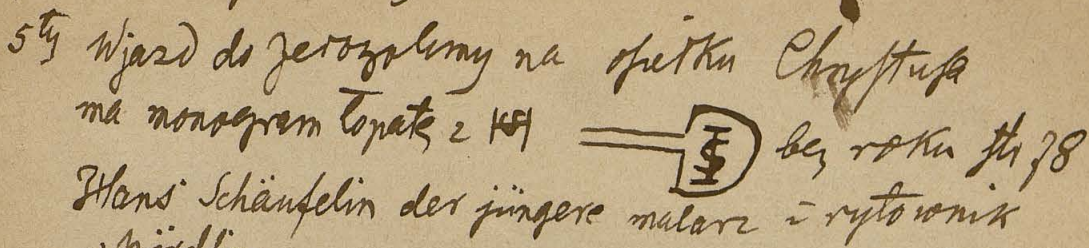 5ty Wjazd do Jerozolimy na osiełku Chrystusa
ma monogram łopatę z HS IS bez roku str 78
Hans Schäufelin der jüngere malarz i rytownik